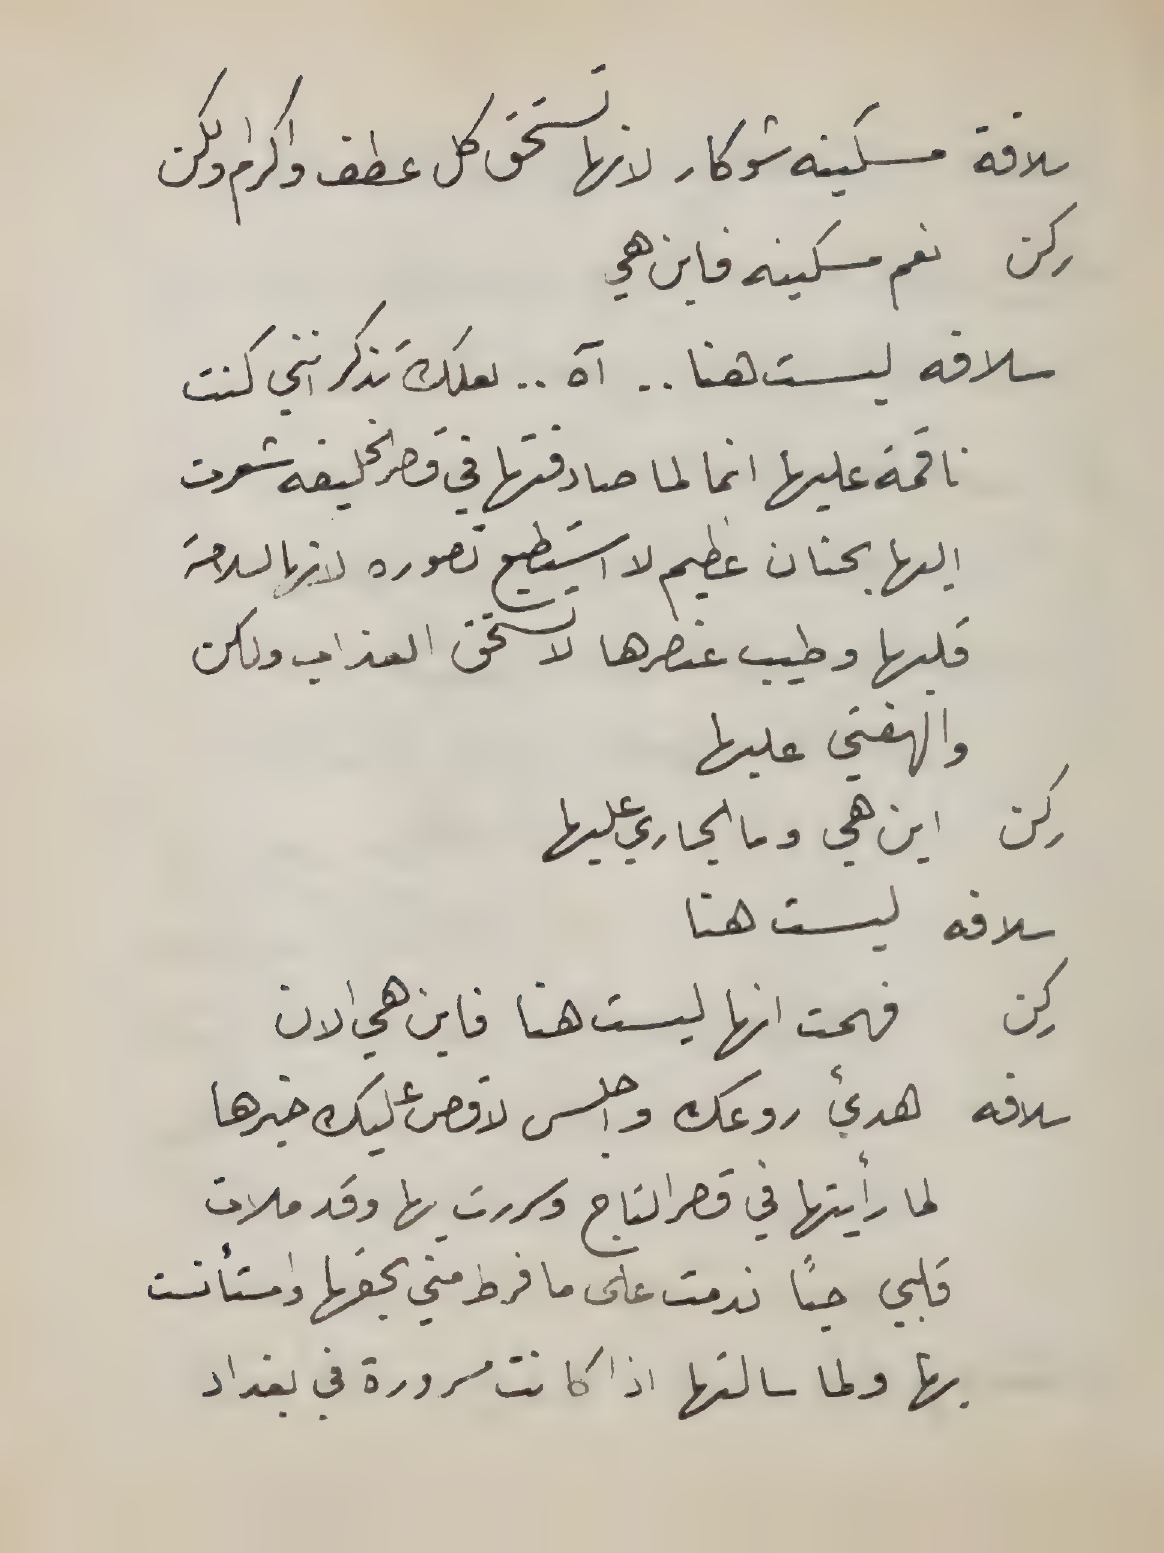 سلافة مسكينه شوكار لانها تستحق كل عطف واكرام ولكن
ركن نعم مسكينه فاين هي
سلافه ليست هنا .. آه .. لعلك تذكر انني كنت
ناقمة عليها انما لما صادفتها في قصر الخليفه شعرت
اليها بحنان عظيم لا استطيع تصوره لانها لسلامة
قلبها وطيب عنصرها لا تستحق العذاب ولكن
والهفتي عليها
ركن اين هي وما الجاري عليها
سلافه ليست هنا
ركن فهمت انها ليست هنا فاين هي الان
سلافه هدئ روعك واجلس لاقص عليك خبرها
لما رأيتها في قصر التاج وسررت بها وقد ملات
قلبي حبًا ندمت على ما فرط مني بحقها واستأنست
بها ولما سالتها اذا كانت مسرورة في بغداد